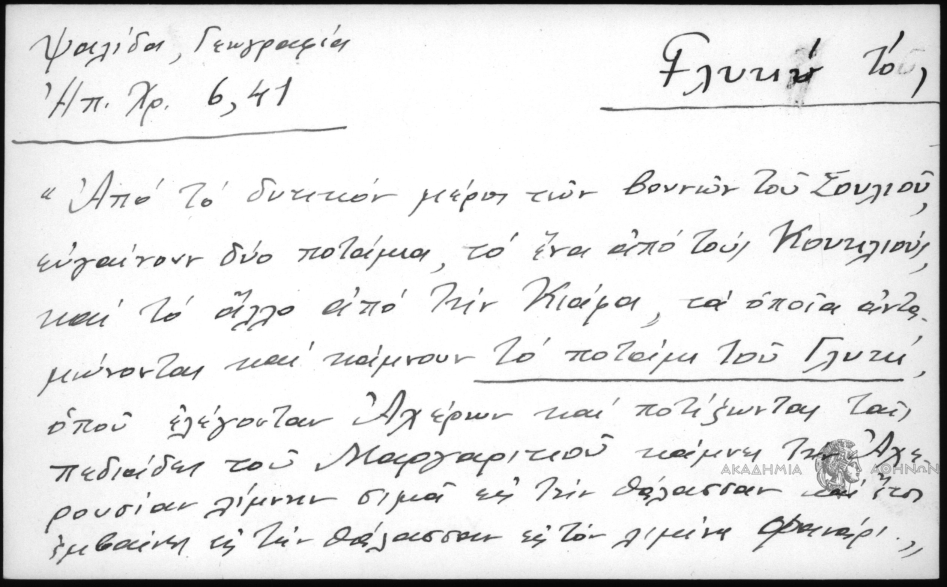 Ψαλίδα, Γεωγραφία
Ἠπ. Χρ. 6,41
Γλυκύ τό,
"Ἀπό τό δυτικόν μέρος τῶν βουνῶν τοῦ Σουλιοῦ,
εὐγαίνουν δύο ποτάμια, τό ἕνα ἀπό τούς
καί τό ἄλλο ἀπό τήν Κιάφα, τά ὁποῖα ἀντα-
μώνονται καί κάμνουν τό ποτάμι τοῦ Γλυκύ,
ὁποῦ ἐλέγονταν Ἀχέρων καί ποτίζωντας ταῖς
πεδιάδες τοῦ Μαργαριτιοῦ κάμνει τήν Ἀχε-
ρουσίαν λίμνην σιμᾶ εἰς τήν θάλασσαν καί ἔτσι
ἐμβαίνει εἰς τήν θάλασσαν εἰς τόν λιμένα Φανάρι."
ΑΚΑΔΗΜΙΑ ΑΘΗΝΩΝ